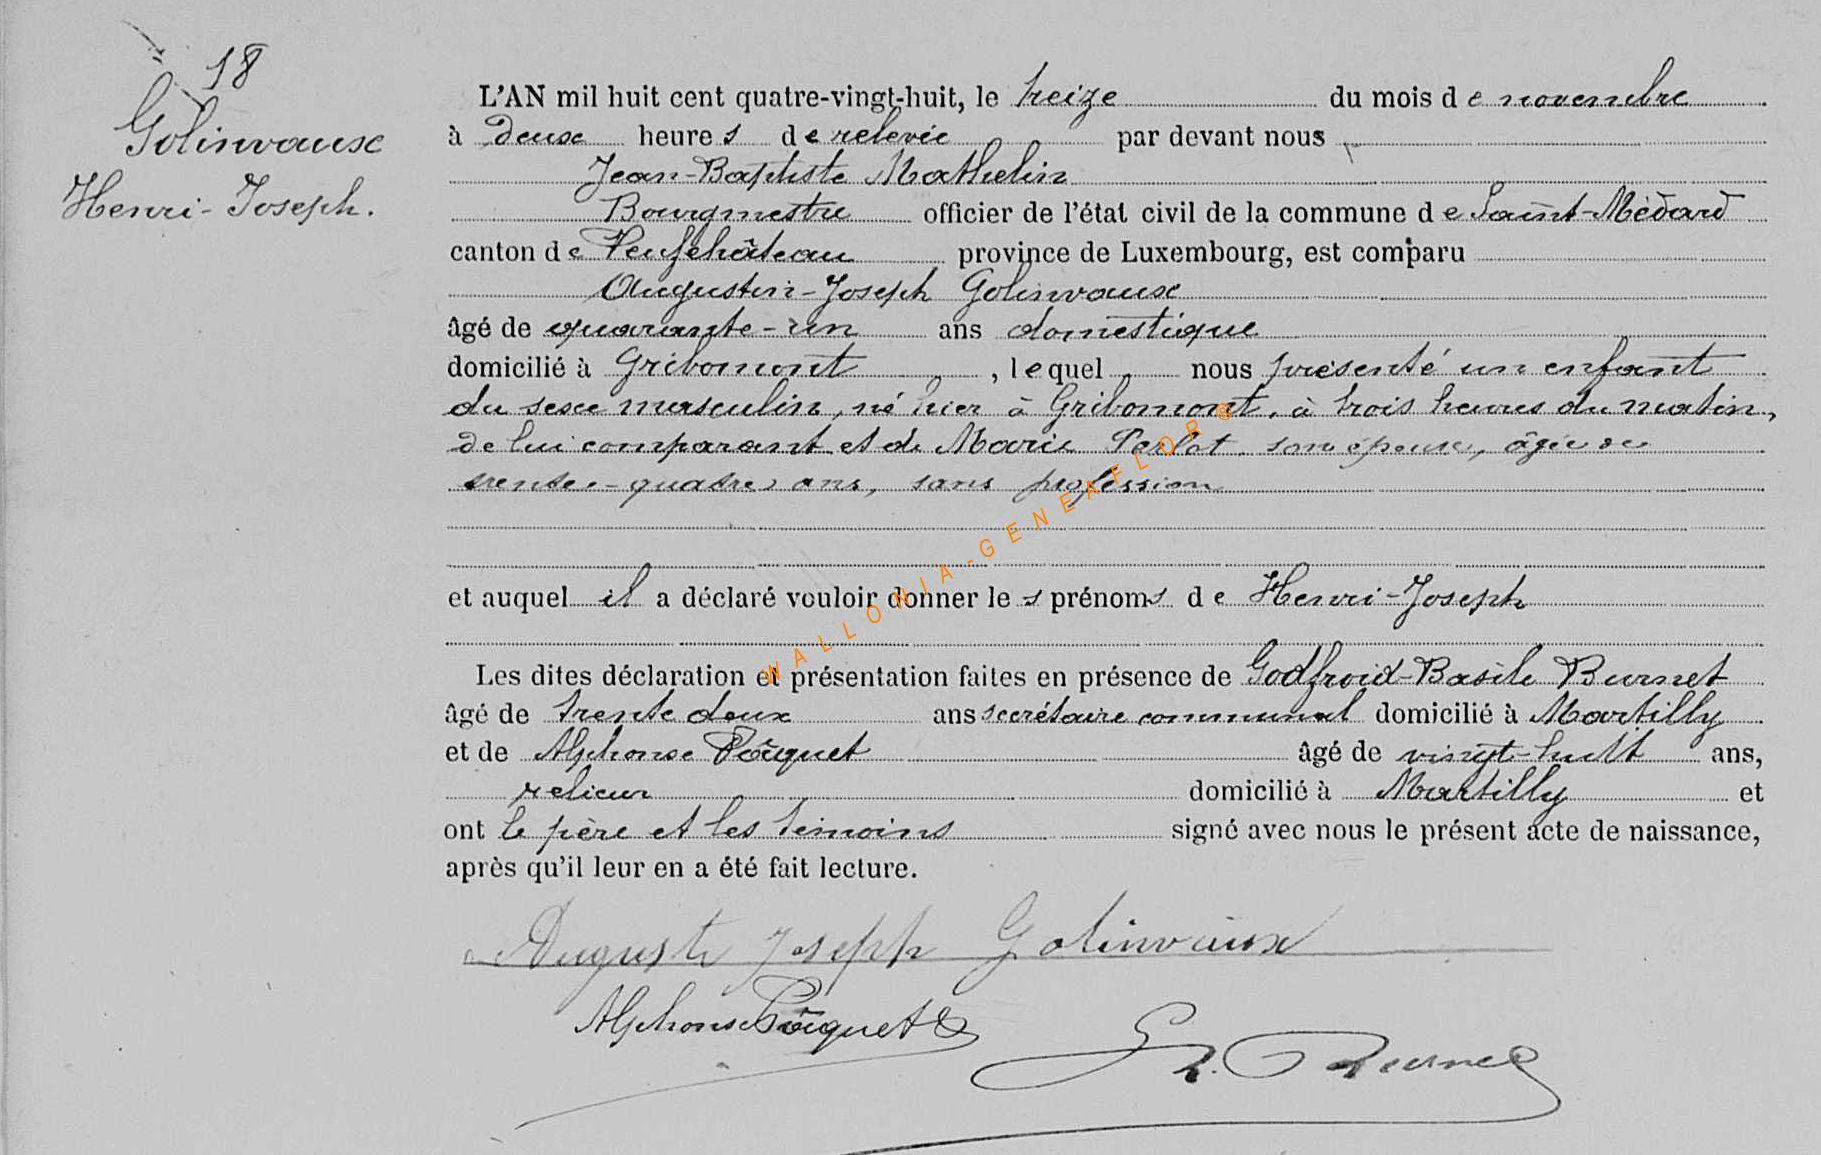 18
Golinvaux
Henri-Joseph.
L'AN mil huit cent quatre-vingt-huit, le treize du mois de novembre
à deux heures de relevée par devant nous
Jean-Baptiste Mathelin
Bourgmestre officier de l'état civil de la commune de Saint-Médard
canton de Neufchâteau province de Luxembourg, est comparu
Augustin-Joseph Golinvaux
âgé de quarante-un ans domestique
domicilié à Gribomont, lequel nous présenté un enfant
du sexe masculin, né hier à Gribomont, à trois heures du matin,
de lui comparant et de Marie Perlot son épouse, âgée de
trente-quatre ans, sans profession
et auquel il a déclaré vouloir donner les prénoms de Henri-Joseph
Les dites déclaration et présentation faites en présence de Godfroid-Basile Burnet
âgé de trente deux ans secrétaire communal domicilié à Martilly
et de Alphonse Pôquet âgé de vingt-huit ans,
relieur domicilié à Martilly et
ont le père et les témoins signé avec nous le présent acte de naissance,
après qu'il leur en a été fait lecture.
Auguste Joseph Golinvaux
Alphonse Pôquet
G. Burnet
WALLONIA-GENEAFLOR®